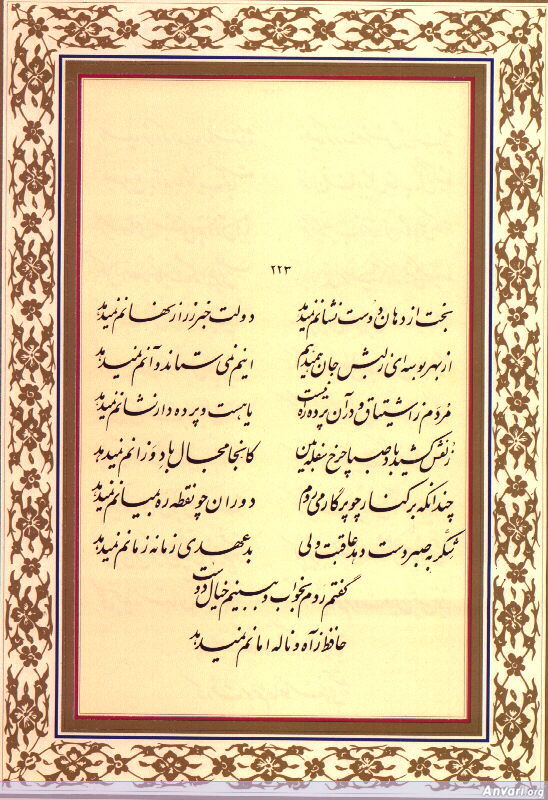 ۲۲۳
بخت از دهان دوست نشانم نمیدهد دولت خبر ز راز نهانم نمیدهد
از بهر بوسه‌ای ز لبش جان همیدهم اینم نمی ستاند و آنم نمیدهد
مردم ز اشتیاق و در آن پرده راه نیست یا هست و پرده دار نشانم نمیدهد
زلفش کشید باد صبا چرخ سفله بین کانجا مجال باد وزانم نمیدهد
چندانکه بر کنار چو پرگار می روم دوران چو نقطه ره بمیانم نمیدهد
شکر به صبر دست دهد عاقبت ولی بد عهدی زمانه زمانم نمیدهد
گفتم روم بخواب و ببینم خیال دوست
حافظ ز آه و ناله امانم نمیدهد
Anvari.org